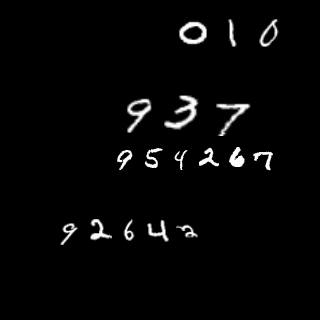 010
937
954267
92642